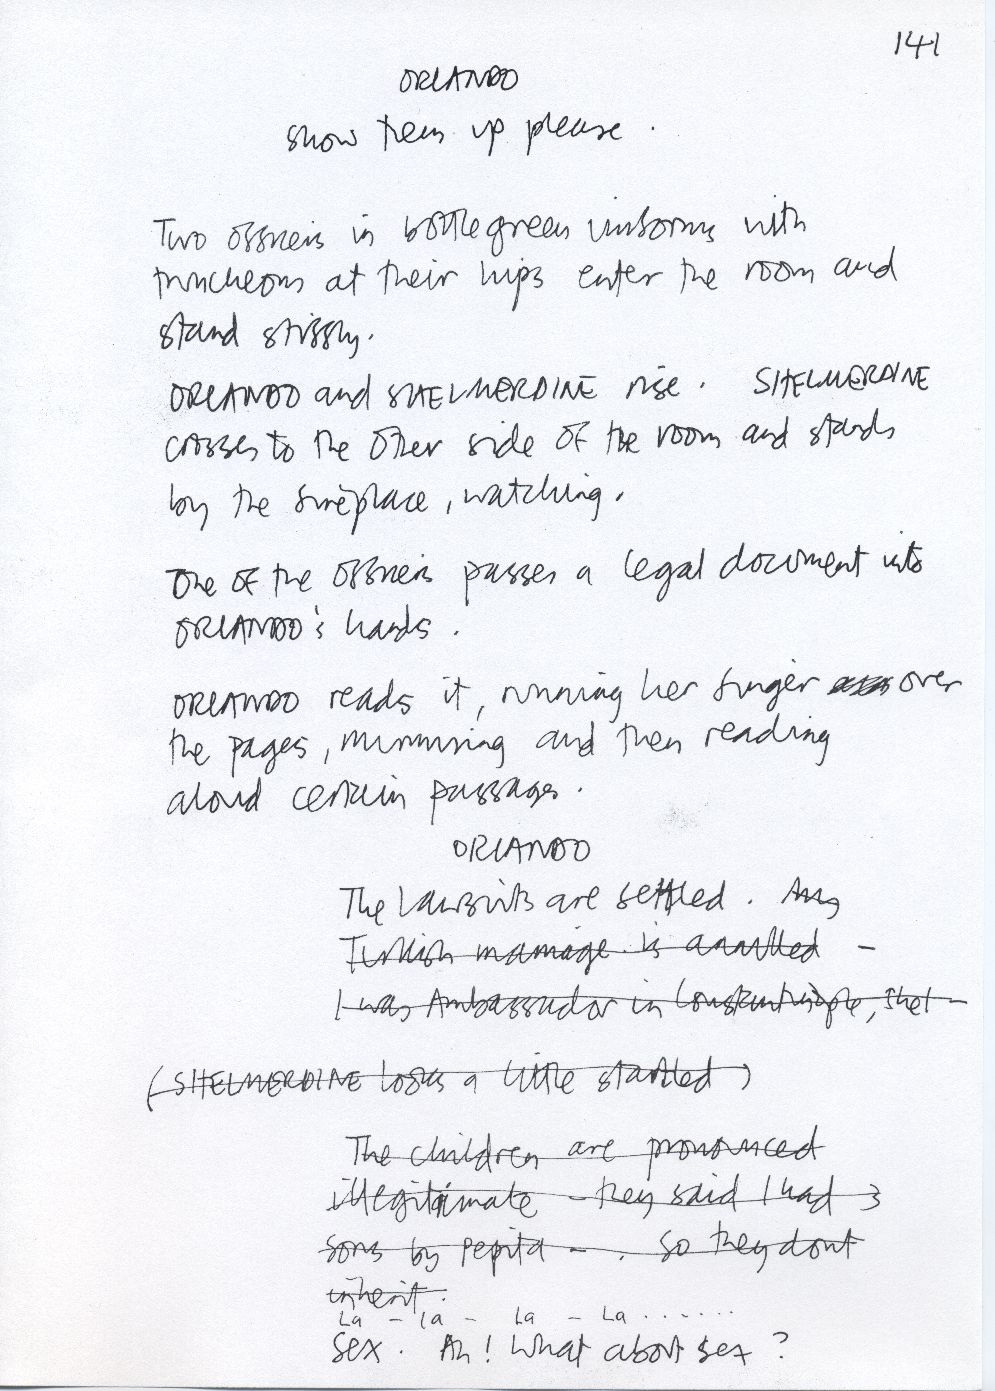 141
ORLANDO
show them up please.
Two officers in bottlegreen uniforms with
truncheons at their hips enter the room and
stand stiffly.
ORLANDO and SHELMERDINE rise. SHELMERDINE
crosses to the other side of the room and stands
by the fireplace, watching.
One of the officers passes a legal document into
ORLANDO's hands.
ORLANDO reads it, running her finger over
the pages, murmuring and then reading
aloud certain passages.
ORLANDO
The Lawsuits are settled.
Turkish marriage is annulled -
I was Ambassador in Constantinople, Shel -
(SHELMERDINE looks a little startled)
The children are pronounced
illegitimate - they said I had 3
sons by Pepita - . So they dont
inherit.
La - la - La - La.......
Sex. Ah! What about sex?